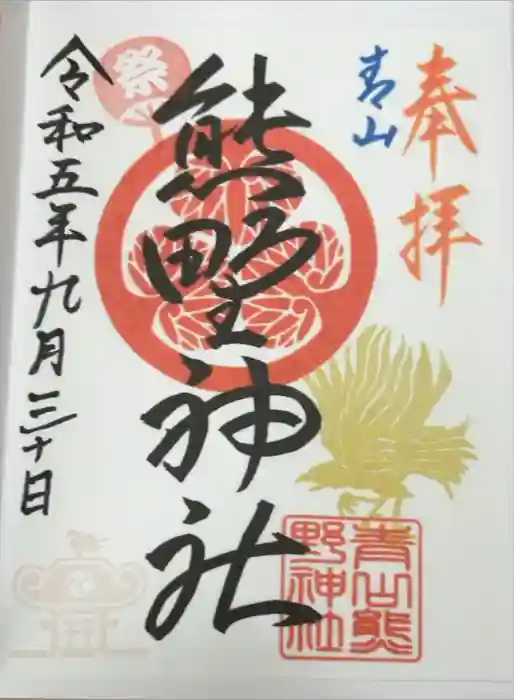 奉拝
青山
熊野神社
令和五年九月三十日
祭
青山熊
野神社